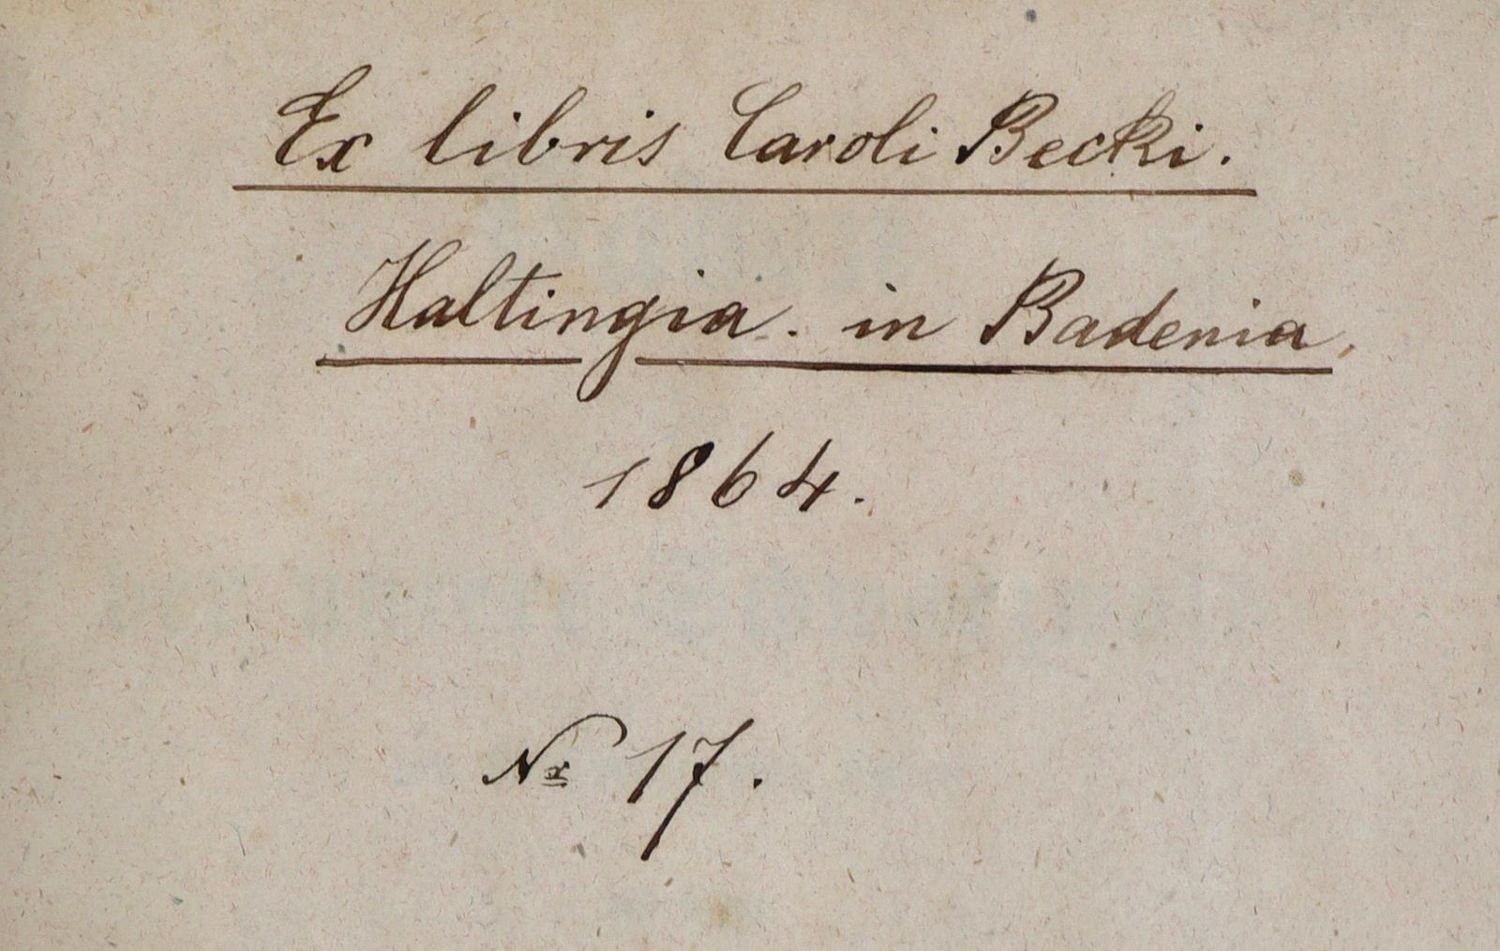 Ex libris Caroli Becki.
Haltingia. in Badenia.
1864.
Nr 17.